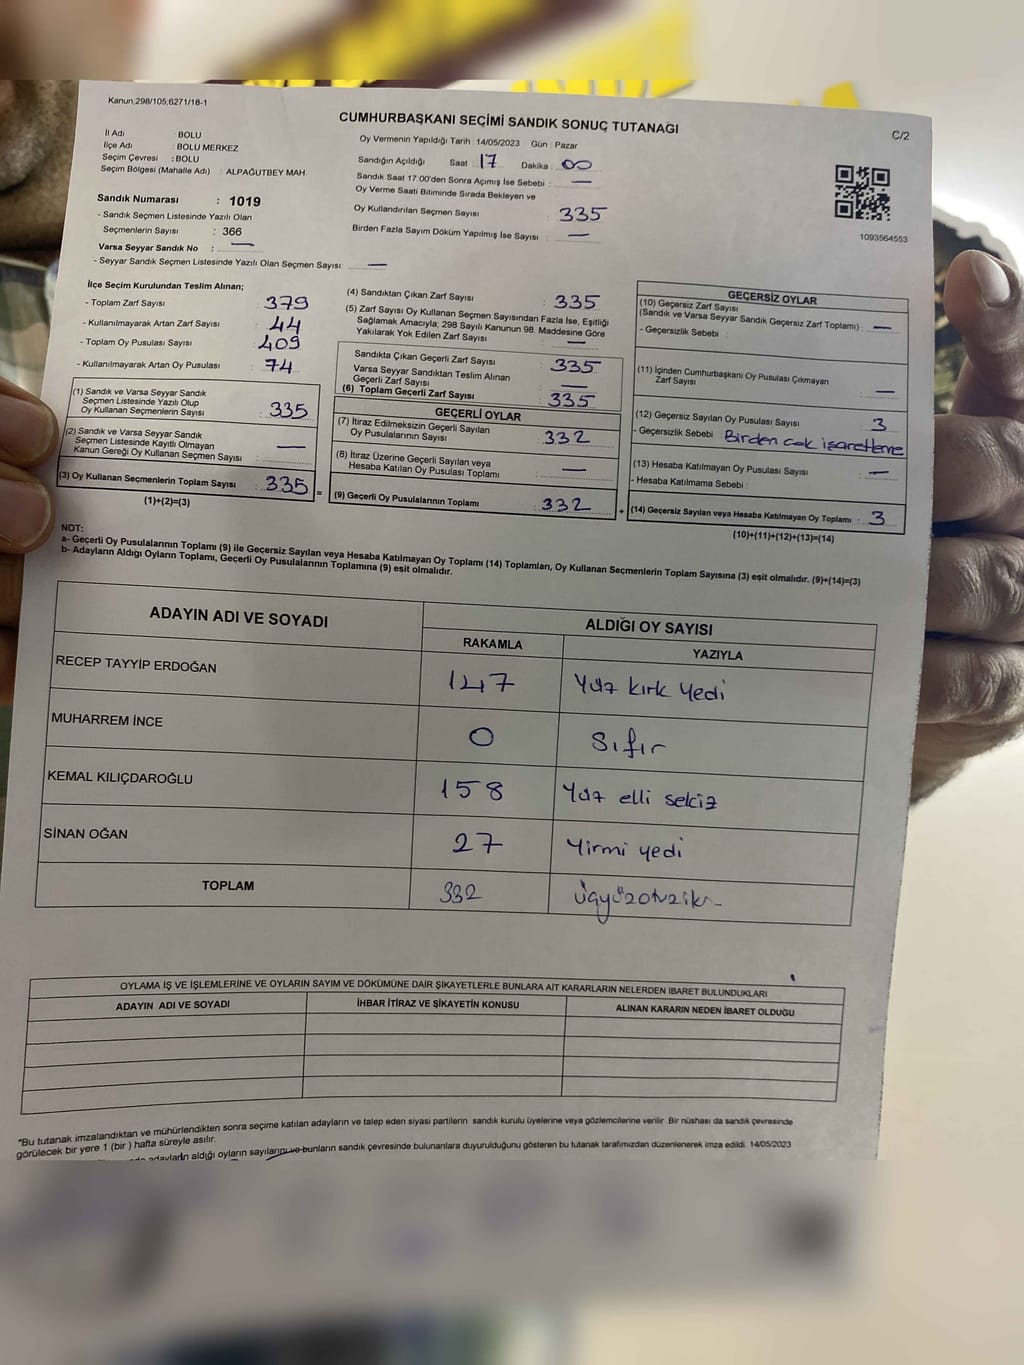 Kanun;298/105;6271/18-1
CUMHURBAŞKANI SEÇİMİ SANDIK SONUÇ TUTANAĞI
C/2
İl Adı : BOLU
İlçe Adı : BOLU MERKEZ
Seçim Çevresi : BOLU
Seçim Bölgesi (Mahalle Adı) : ALPAĞUTBEY MAH.
Sandık Numarası : 1019
- Sandık Seçmen Listesinde Yazılı Olan
Seçmenlerin Sayısı : 366
Varsa Seyyar Sandık No : —
- Seyyar Sandık Seçmen Listesinde Yazılı Olan Seçmen Sayısı: —
Oy Vermenin Yapıldığı Tarih : 14/05/2023 Gün : Pazar
Sandığın Açıldığı Saat : 17 Dakika : 00
Sandık Saat 17:00'den Sonra Açılmış İse Sebebi : —
Oy Verme Saati Bitiminde Sırada Bekleyen ve
Oy Kullandırılan Seçmen Sayısı : 335
Birden Fazla Sayım Döküm Yapılmış İse Sayısı : —
1093564553
İlçe Seçim Kurulundan Teslim Alınan;
- Toplam Zarf Sayısı : 379
- Kullanılmayarak Artan Zarf Sayısı : 44
- Toplam Oy Pusulası Sayısı : 409
- Kullanılmayarak Artan Oy Pusulası : 74
(1) Sandık ve Varsa Seyyar Sandık
Seçmen Listesinde Yazılı Olup
Oy Kullanan Seçmenlerin Sayısı : 335
(2) Sandık ve Varsa Seyyar Sandık
Seçmen Listesinde Kayıtlı Olmayan
Kanun Gereği Oy Kullanan Seçmen Sayısı : —
(3) Oy Kullanan Seçmenlerin Toplam Sayısı : 335
(1)+(2)=(3)
=
(4) Sandıktan Çıkan Zarf Sayısı : 335
(5) Zarf Sayısı Oy Kullanan Seçmen Sayısından Fazla İse, Eşitliği
Sağlamak Amacıyla, 298 Sayılı Kanunun 98. Maddesine Göre
Yakılarak Yok Edilen Zarf Sayısı : —
Sandıkta Çıkan Geçerli Zarf Sayısı : 335
Varsa Seyyar Sandıktan Teslim Alınan
Geçerli Zarf Sayısı : —
(6) Toplam Geçerli Zarf Sayısı : 335
GEÇERLİ OYLAR
(7) İtiraz Edilmeksizin Geçerli Sayılan
Oy Pusulalarının Sayısı : 332
(8) İtiraz Üzerine Geçerli Sayılan veya
Hesaba Katılan Oy Pusulası Toplamı : —
(9) Geçerli Oy Pusulalarının Toplamı : 332
+
GEÇERSİZ OYLAR
(10) Geçersiz Zarf Sayısı
(Sandık ve Varsa Seyyar Sandık Geçersiz Zarf Toplamı) : —
- Geçersizlik Sebebi :
(11) İçinden Cumhurbaşkanı Oy Pusulası Çıkmayan
Zarf Sayısı : —
(12) Geçersiz Sayılan Oy Pusulası Sayısı : 3
- Geçersizlik Sebebi : Birden çok işaretleme
(13) Hesaba Katılmayan Oy Pusulası Sayısı : —
- Hesaba Katılmama Sebebi :
(14) Geçersiz Sayılan veya Hesaba Katılmayan Oy Toplamı : 3
(10)+(11)+(12)+(13)=(14)
NOT:
a- Geçerli Oy Pusulalarının Toplamı (9) ile Geçersiz Sayılan veya Hesaba Katılmayan Oy Toplamı (14) Toplamları, Oy Kullanan Seçmenlerin Toplam Sayısına (3) eşit olmalıdır. (9)+(14)=(3)
b- Adayların Aldığı Oyların Toplamı, Geçerli Oy Pusulalarının Toplamına (9) eşit olmalıdır.
ADAYIN ADI VE SOYADI
ALDIĞI OY SAYISI
RAKAMLA YAZIYLA
RECEP TAYYİP ERDOĞAN 147 Yüz kırk yedi
MUHARREM İNCE 0 Sıfır
KEMAL KILIÇDAROĞLU 158 Yüz elli sekiz
SİNAN OĞAN 27 Yirmi yedi
TOPLAM 332 Üçyüzotuziki
OYLAMA İŞ VE İŞLEMLERİNE VE OYLARIN SAYIM VE DÖKÜMÜNE DAİR ŞİKAYETLERLE BUNLARA AİT KARARLARIN NELERDEN İBARET BULUNDUKLARI
ADAYIN ADI VE SOYADI İHBAR İTİRAZ VE ŞİKAYETİN KONUSU ALINAN KARARIN NEDEN İBARET OLDUĞU
*Bu tutanak imzalandıktan ve mühürlendikten sonra seçime katılan adayların ve talep eden siyasi partilerin sandık kurulu üyelerine veya gözlemcilerine verilir. Bir nüshası da sandık çevresinde
görülecek bir yere 1 (bir ) hafta süreyle asılır.
adayların aldığı oyların sayılarını ve bunların sandık çevresinde bulunanlara duyurulduğunu gösteren bu tutanak tarafımızdan düzenlenerek imza edildi. 14/05/2023